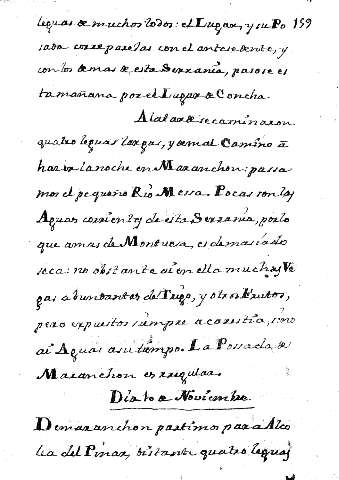 leguas de muchos lodos: el Lugar, y su Po 159
sada corre parejas con el antesedente, y
con los demas de esta Serrania, pasose es
ta mañana por el Lugar de Concha.
A la tarde se caminaron
quatro leguas largas, y de mal Camino à
hazer la noche en Maranchon: passa
mos el pequeño Rio Messa. Pocas son las
Aguas corrientes de esta Serrania, por lo
que a mas de Montuosa, es demasiado
seca: no obstante ai en ella muchas Ve
gas abundantes de Trigo, y otros Frutos,
pero expuestos siempre a carestia, sino
ai Aguas a su tiempo. La Possada de
Maranchon es regular.
Dia 10 de Noviembre.
De maranchon partimos para Alco
lea del Pinar, distante quatro leguas